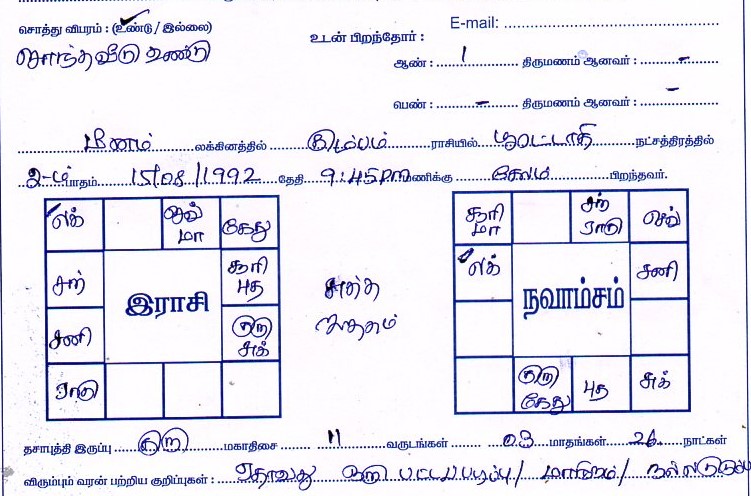 சொத்து விபரம் : (உண்டு / இல்லை) E-mail:
உடன் பிறந்தோர் :
சொந்தவீடு உண்டு
ஆண் : 1 திருமணம் ஆனவர் : -
பெண் : - திருமணம் ஆனவர் : -
மீனம் லக்கினத்தில் கும்பம் ராசியில் பூரட்டாதி நட்சத்திரத்தில்
2-ம் பாதம் 15/08/1992 தேதி 9:45pm மணிக்கு சேலம் பிறந்தவர்.
லக் செவ் மா கேது
சந் சூரி புத
இராசி
சனி குரு சுக்
ராகு
சுத்த ஜாதகம்
சூரி மா சந் ராகு செவ்
லக் சனி
நவாம்சம்
குரு கேது புத சுக்
தசாபுத்தி இருப்பு குரு மகாதிசை 11 வருடங்கள் 03 மாதங்கள் 26 நாட்கள்
விரும்பும் வரன் பற்றிய குறிப்புகள் : ஏதாவது ஒரு பட்டப்படிப்பு /